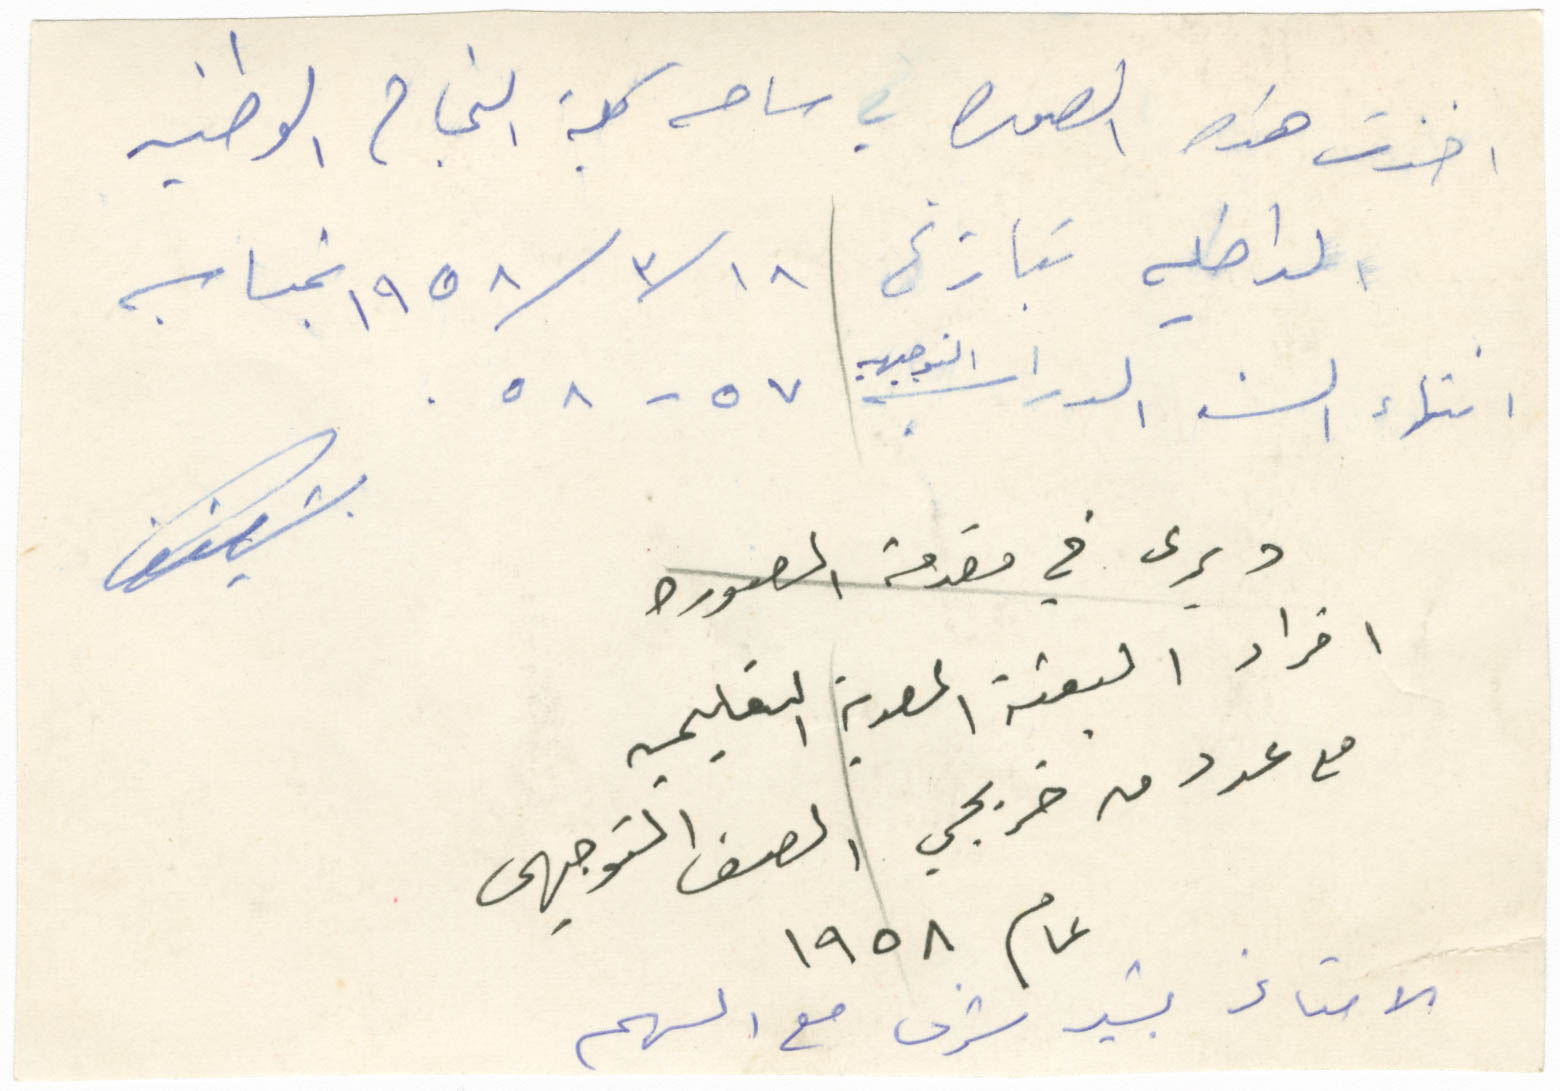 اخذت هذه الصوره في ساحه كلية النجاح الوطنيه
الداخليه بتاريخ ١٨/٣/١٩٥٨ بمناسبه
انتهاء السنه الدراسيه التوجيهيه ٥٧-٥٨.
ويرى في مقدمة الصوره
افراد البعثة المصرية التعليميه
مع عدد من خريجي الصف التوجيهي
عام ١٩٥٨
الاستاذ بشير شرف مع السهم